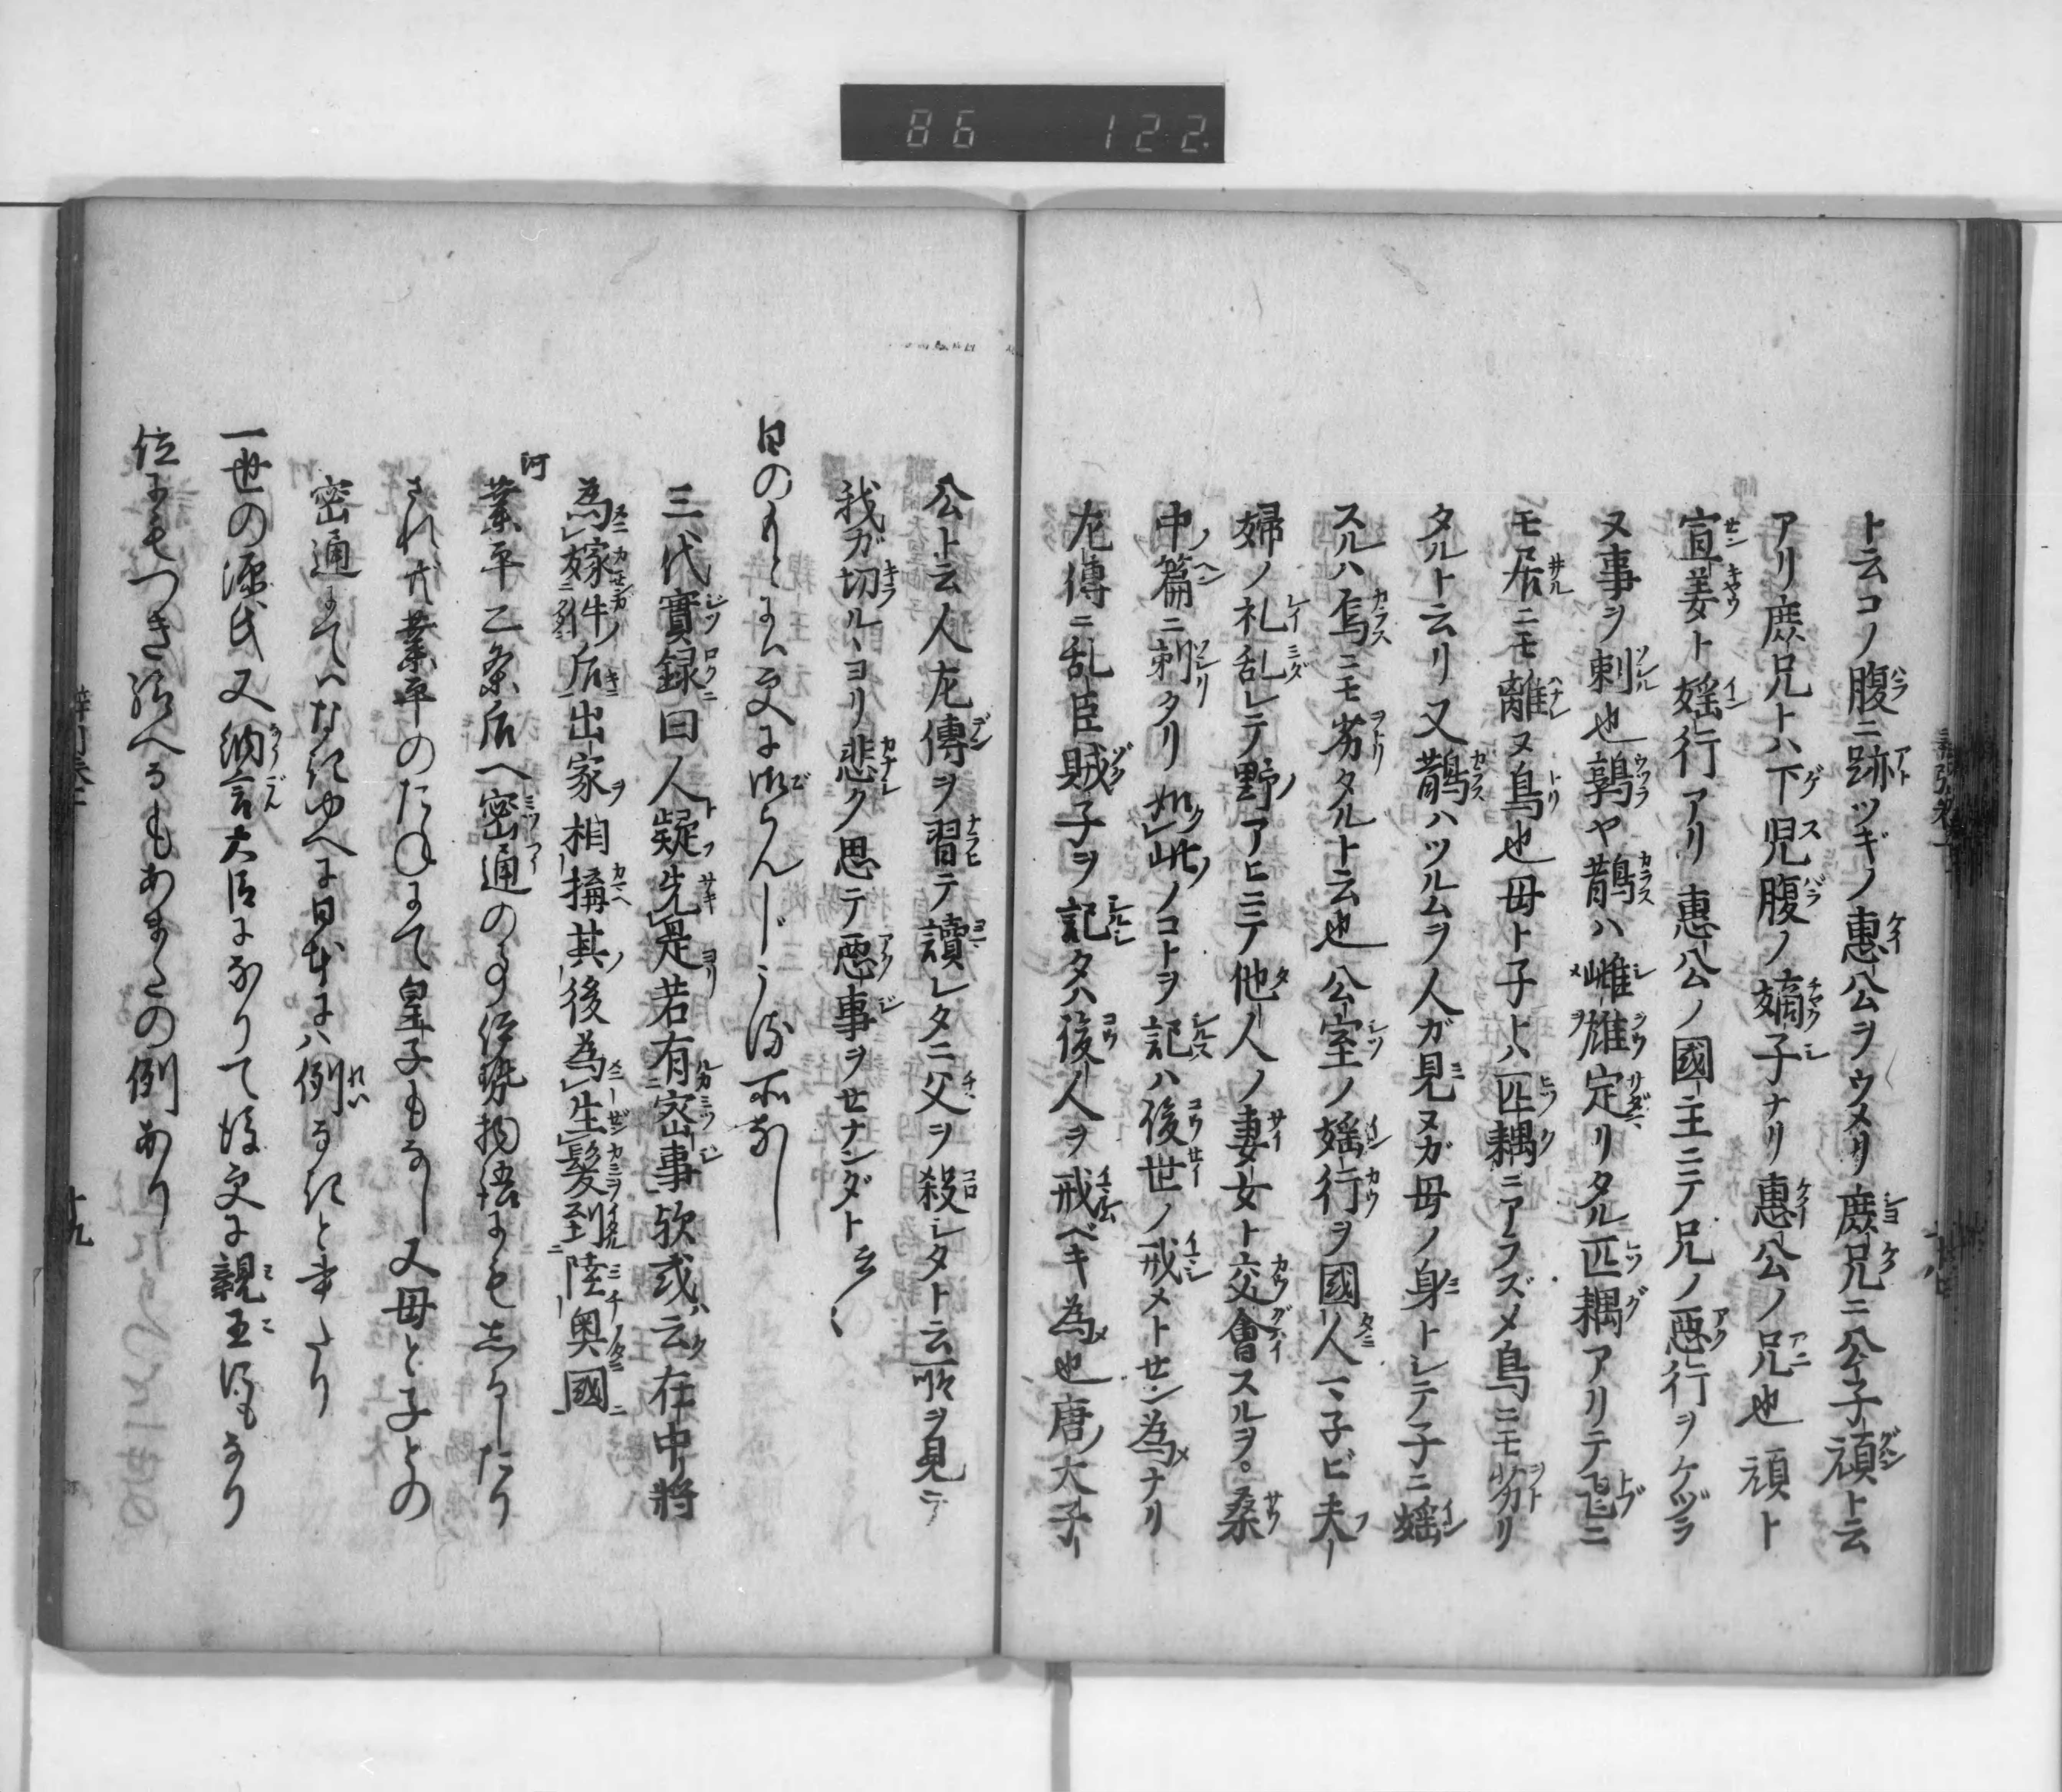 86 122.
ト云コノ腹ニ跡ツギノ惠公ヲウメリ庶兄ニ公子頑ト云
アリ庶兄トハ下児腹ノ嫡子ナリ惠公ノ兄也頑ト
宣姜ト婬行アリ惠公ノ國主ニテ兄ノ惡行ヲケヅラ
ヌ事ヲ刺也鶉ヤ鵲ハ雌雄定リタル匹耦アリテ飛ニ
モ居ニモ離ヌ鳥也母ト子トハ匹耦ニアラズメ鳥ニモ劣リ
タルト云リ又鵲ハツルムヲ人ガ見ヌガ母ノ身トシテ子ニ婬
スルハ烏ニモ劣タルト云也公室ノ婬行ヲ國人ミ子ビ夫
婦ノ礼乱レテ野アヒニテ他人ノ妻女ト交會スルヲ。桑
中ノ篇ニ刺タリ如此ノコトヲ記ハ後世ノ戒メトセン為ナリ
左傳ニ乱臣賊子ヲ記タハ後人ヲ戒ベキ為也唐ノ大子
公ト云人左傳ヲ習テ讀レタニ父ヲ殺シタト云所ヲ見テ
我ガ切ル丶ヨリ悲ク思テ惡事ヲセナンダト云々
日のもとには更に御らんじうる所なし
三代實録曰人疑先是若有密事欤或云在中將
為嫁件后出家相搆其後為生髮到陸奥國
河
業平二条后へ密通の事伊勢物語にも志るしたり
されば業平のたねにて皇子もなし又母と子との
密通にてはなきゆへに日本には例なきと書たり
一世の源氏又納言大臣になりて後更に親王にもなり
位にもつき給へるもあまたの例あり
十九